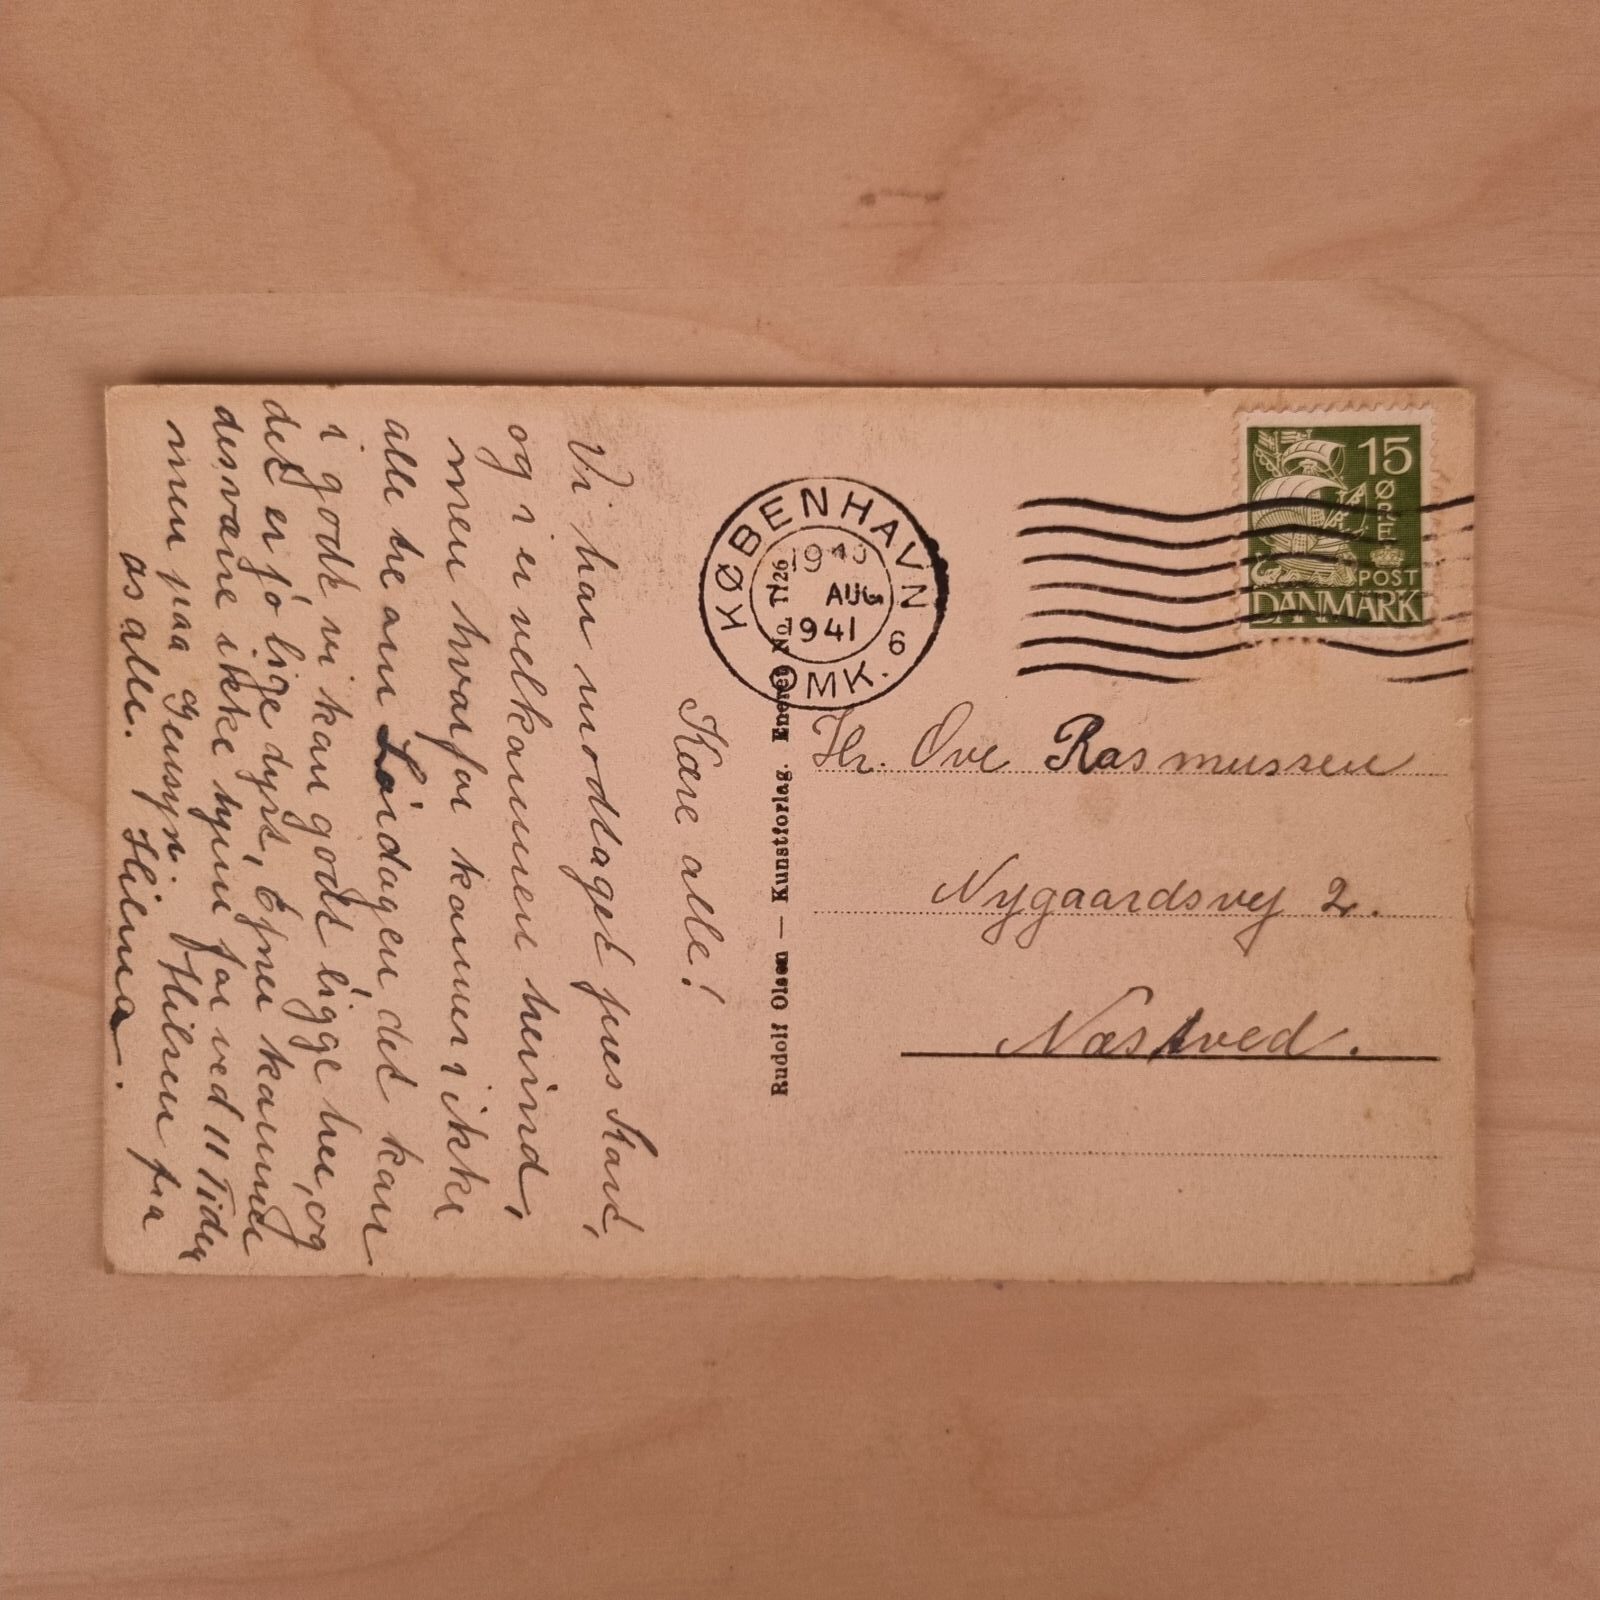 Kære alle!
Vi har modtaget jres Kort,
og i er velkommen herind,
men hvorfor kommer i ikke
alle tre om Lördagen det kan
i godt, vi kan godt ligge her, og
det er jo lige dyrt, Ejner kommer
desværre ikke hjem før ved 11 Tiden
men paa Gensyn. Hilsen fra
os alle. Hilma.
Rudolf Olsen — Kunstforlag. Eneret No. 7726
KØBENHAVN
AUG
1941
6
OMK.
15
ØRE
POST
DANMARK
Hr. Ove Rasmussen
Nygaardsvej 2.
Næstved.